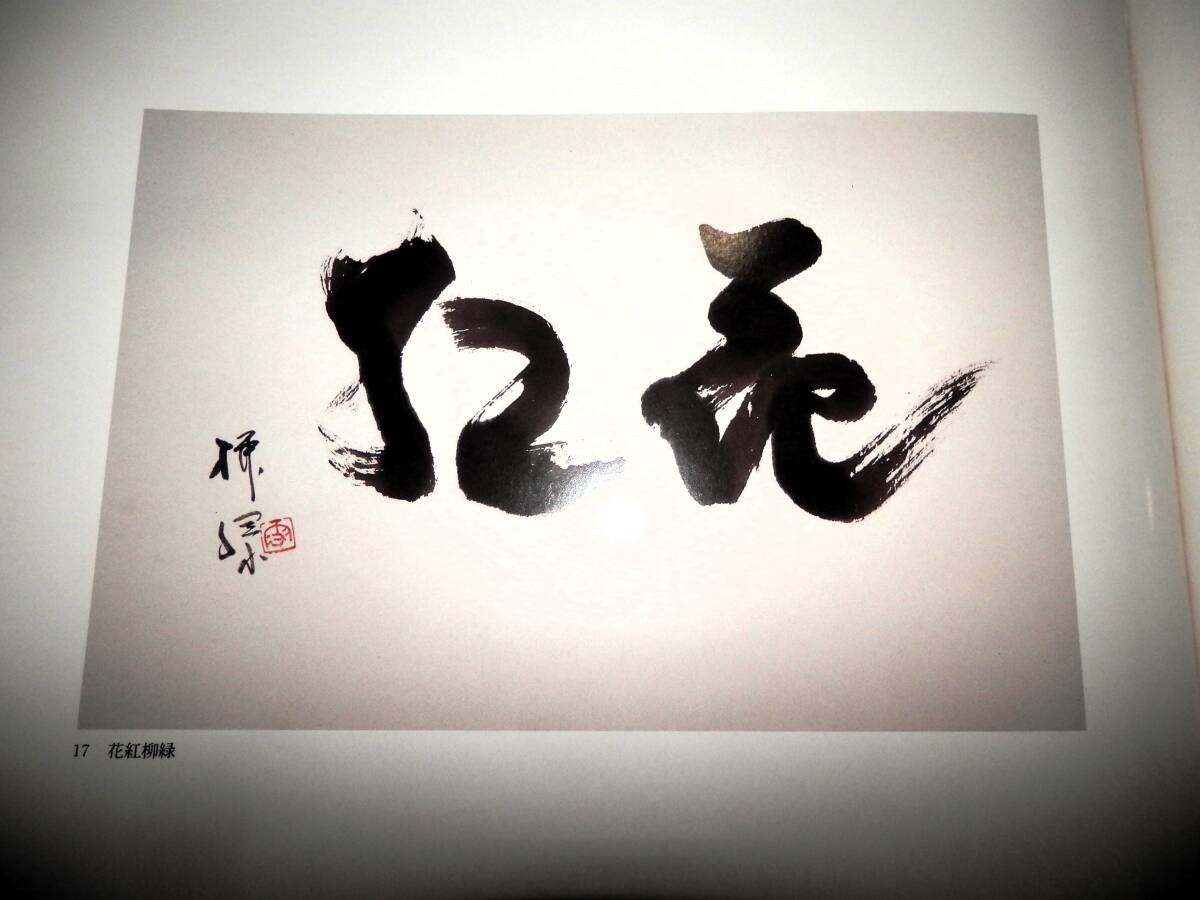 花紅
柳
緑
17 花紅柳緑